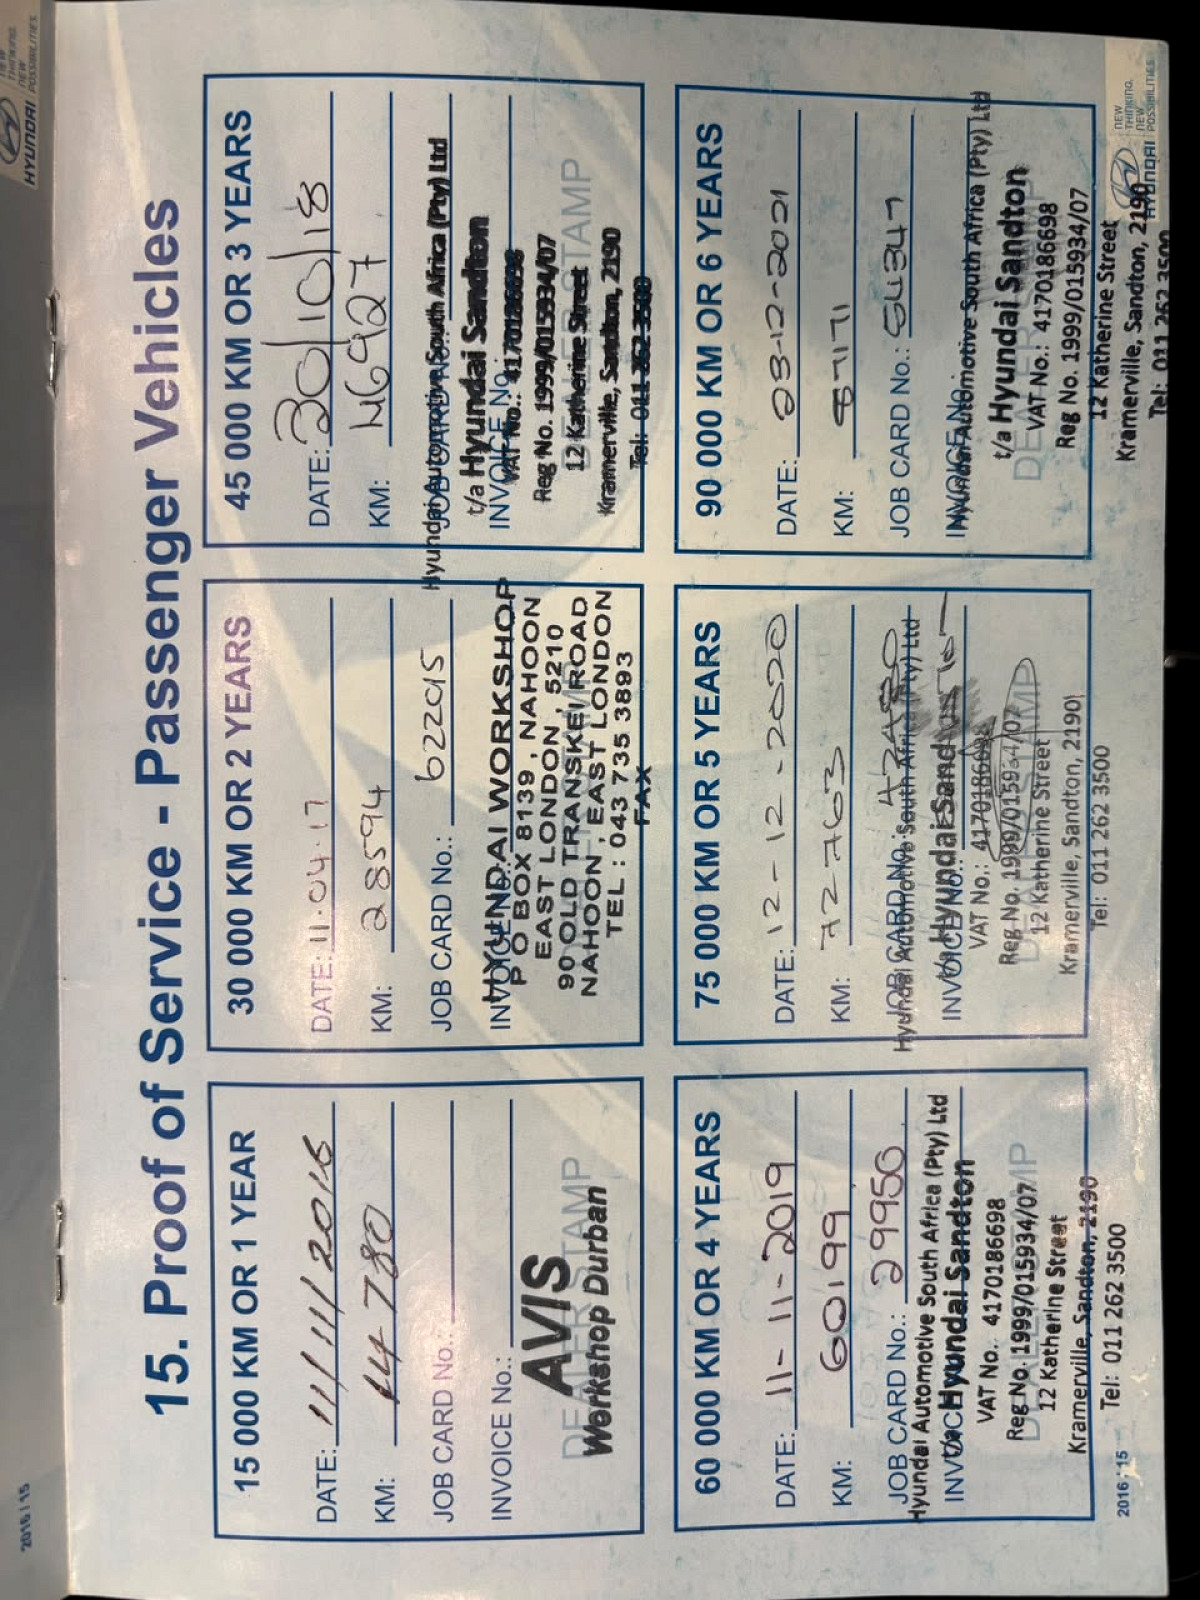 15. Proof of Service - Passenger Vehicles
15 000 KM OR 1 YEAR
DATE: 11/11/2016
KM: 14 780
JOB CARD No.:
INVOICE No.:
DEALER STAMP
AVIS
Workshop Durban
30 000 KM OR 2 YEARS
DATE: 11.04.17
KM: 28594
JOB CARD No.: 622015
INVOICE No.:
HYUNDAI WORKSHOP
P O BOX 8139, NAHOON
EAST LONDON, 5210
90 OLD TRANSKEI ROAD
NAHOON, EAST LONDON
TEL : 043 735 3893
FAX
45 000 KM OR 3 YEARS
DATE: 30/10/18
KM: 46927
JOB CARD No.:
INVOICE No.:
DEALER STAMP
Hyundai Automotive South Africa (Pty) Ltd
t/a Hyundai Sandton
VAT No.: 4170186698
Reg No. 1999/015934/07
12 Katherine Street
Kramerville, Sandton, 2190
Tel: 011 262 3500
60 000 KM OR 4 YEARS
DATE: 11-11-2019
KM: 60199
JOB CARD No.: 29950
INVOICE
DEALER STAMP
Hyundai Automotive South Africa (Pty) Ltd
t/a Hyundai Sandton
VAT No. 4170186698
Reg No. 1999/015934/07
12 Katherine Street
Kramerville, Sandton, 2190
Tel: 011 262 3500
75 000 KM OR 5 YEARS
DATE: 12-12-2020
KM: 72763
JOB CARD No.:
INVOICE No.:
DEALER STAMP
Hyundai Automotive South Africa (Pty) Ltd
Hyundai Sand
VAT No.: 4170186698
Reg No. 1999/015934/07
12 Katherine Street
Kramerville, Sandton, 2190
Tel: 011 262 3500
90 000 KM OR 6 YEARS
DATE: 03-12-2021
KM: 87171
JOB CARD No.: 54347
INVOICE No.:
DEALER STAMP
Hyundai Automotive South Africa (Pty) Ltd
t/a Hyundai Sandton
VAT No.: 4170186698
Reg No. 1999/015934/07
12 Katherine Street
Kramerville, Sandton, 2190
Tel: 011 262 3500
2016 / 15
HYUNDAI
NEW
THINKING.
NEW
POSSIBILITIES.
2016 / 15
HYUNDAI
NEW
THINKING.
NEW
POSSIBILITIES.